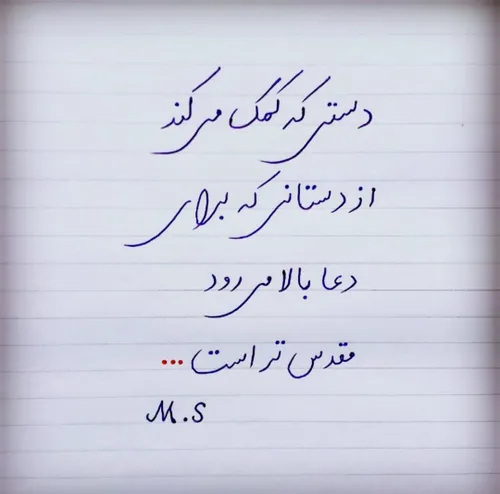 دستی که کمک می کند
از دستانی که برای
دعا بالا می رود
مقدس تر است ...
M.S